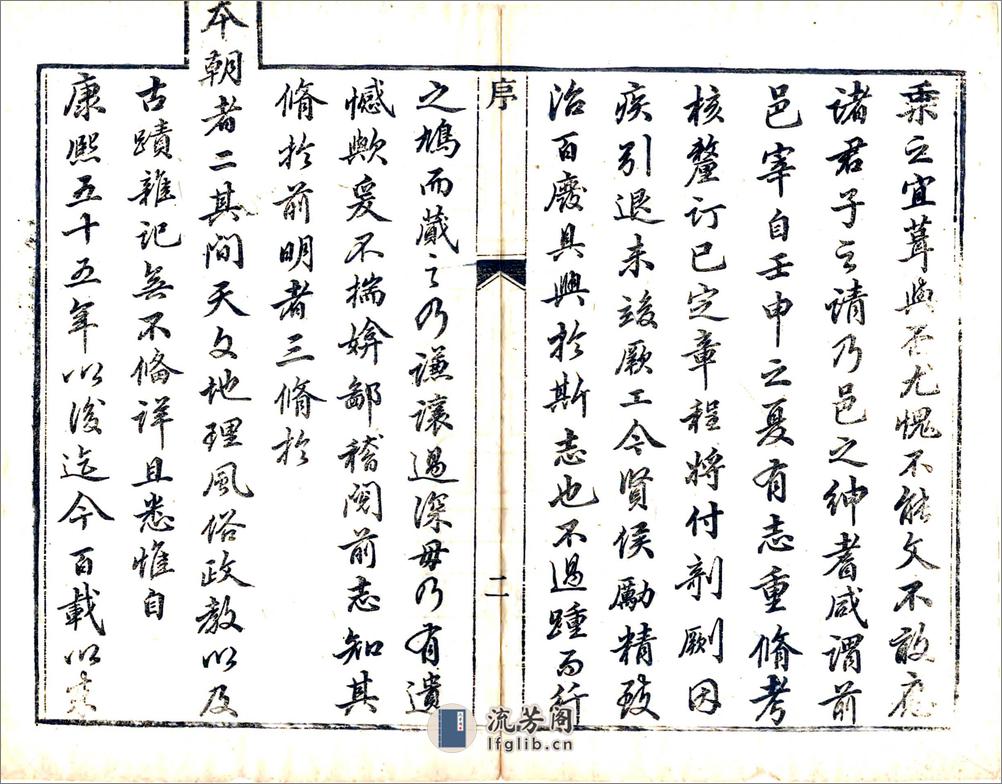 乘之宜葺與否尤愧不能文不敢應
諸君子之請乃邑之紳耆咸謂前
邑宰自壬申之夏有志重脩考
核釐訂已定章程將付剞劂因
疾引退未竣厥工今賢侯勵精致
治百廢具興於斯志也不過踵而行
序
二
之鳩而蕆之乃謙讓過深毋乃有遺
憾歟爰不揣媕鄙稽閱前志知其
脩於前明者三脩於
本朝者二其間天文地理風俗政教以及
古蹟雜記無不備詳且悉惟自
康熙五十五年以後迄今百載以來
流芳阁
lfglib.cn